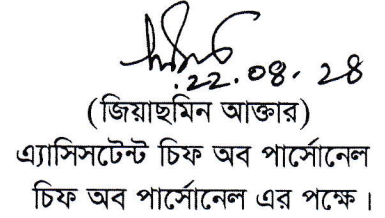 ২২.০৪.২৪
(জিয়াছমিন আক্তার)
এ্যাসিসটেন্ট চিফ অব পার্সোনেল
চিফ অব পার্সোনেল এর পক্ষে।